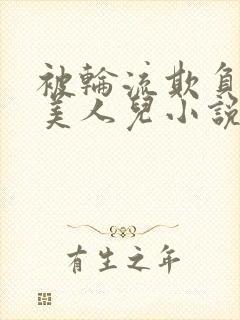 被輪流欺負
美人兒小說
有生之年